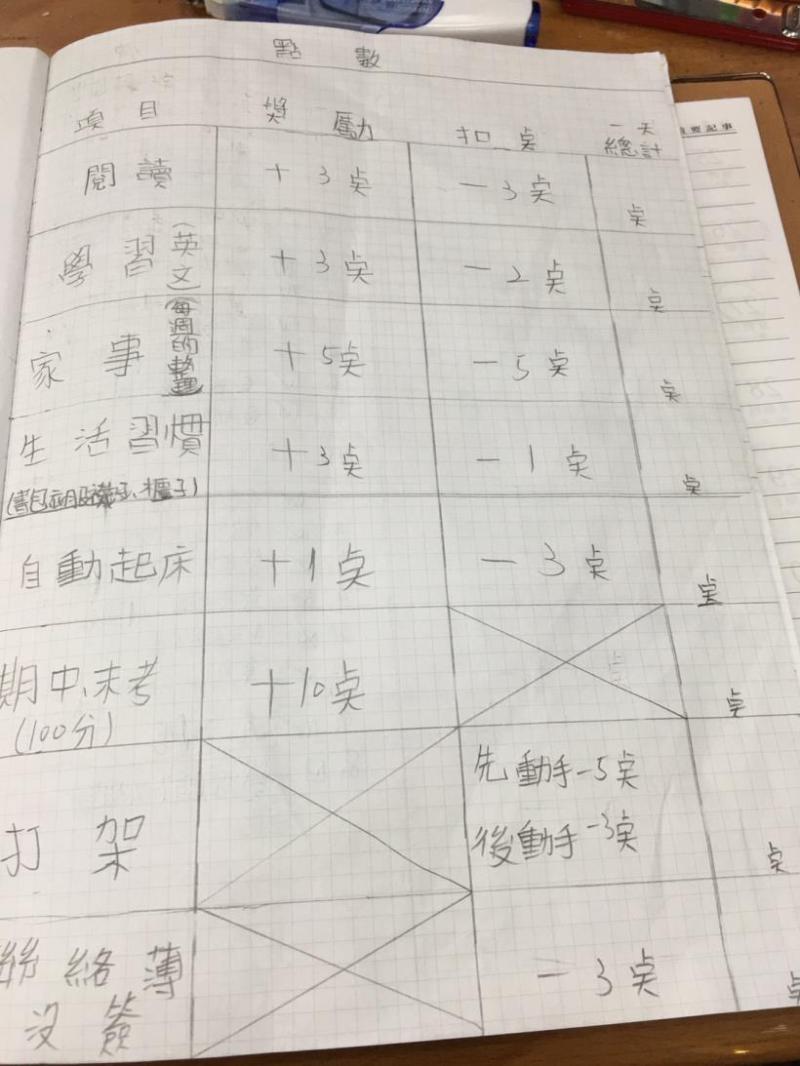 點數
項目 獎勵 扣點 一天總計
要記事
閱讀 +3点 -3点 点
學習(英文) +3点 -2点 点
家事(每週的整理) +5点 -5点 点
生活習慣 +3点 -1点 点
(書包、衣服、襪子、櫃子)
自動起床 +1点 -3点 点
期中、末考 +10点 点
(100分)
打架 先動手-5点 点
後動手-3点
聯絡薄 -3点 点
沒簽